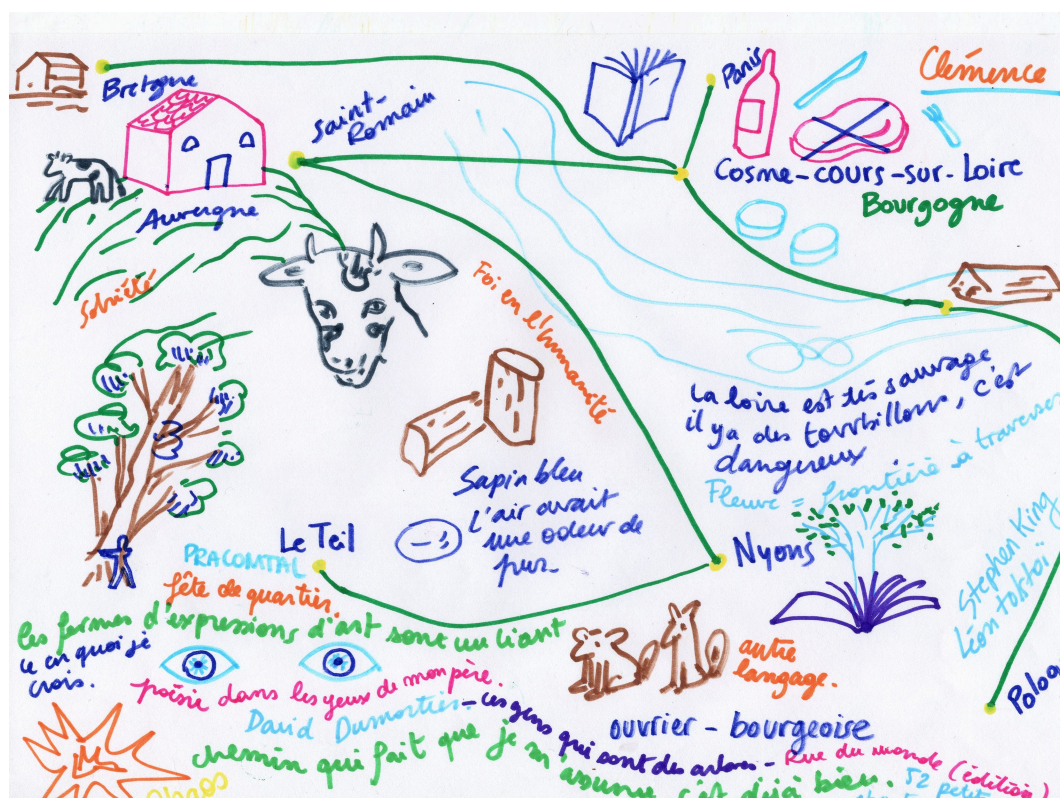 Bretagne
Saint-
Romain
Paris
Clémence
Cosne-cours-sur-Loire
Bourgogne
Auvergne
Sobriété
Foi en l'humanité
La loire est très sauvage
il y a des tourbillons, c'est
dangereux
Fleuve = frontière à traverser
Sapin bleu
L'air avait
une odeur de
pur.
Le Teil
Nyons
PRACOMTAL
fête de quartier.
Stephen King
Léon tolstoï
les formes d'expressions d'art sont un liant
ce en quoi je
crois.
poésie dans les yeux de mon père.
autre
langage.
Polog
David Dumortier - ces gens qui sont des arbres - Rue du monde (édition)
ouvrier - bourgeoise
chemin qui fait que je m'assume c'est déjà bien.
52 petit